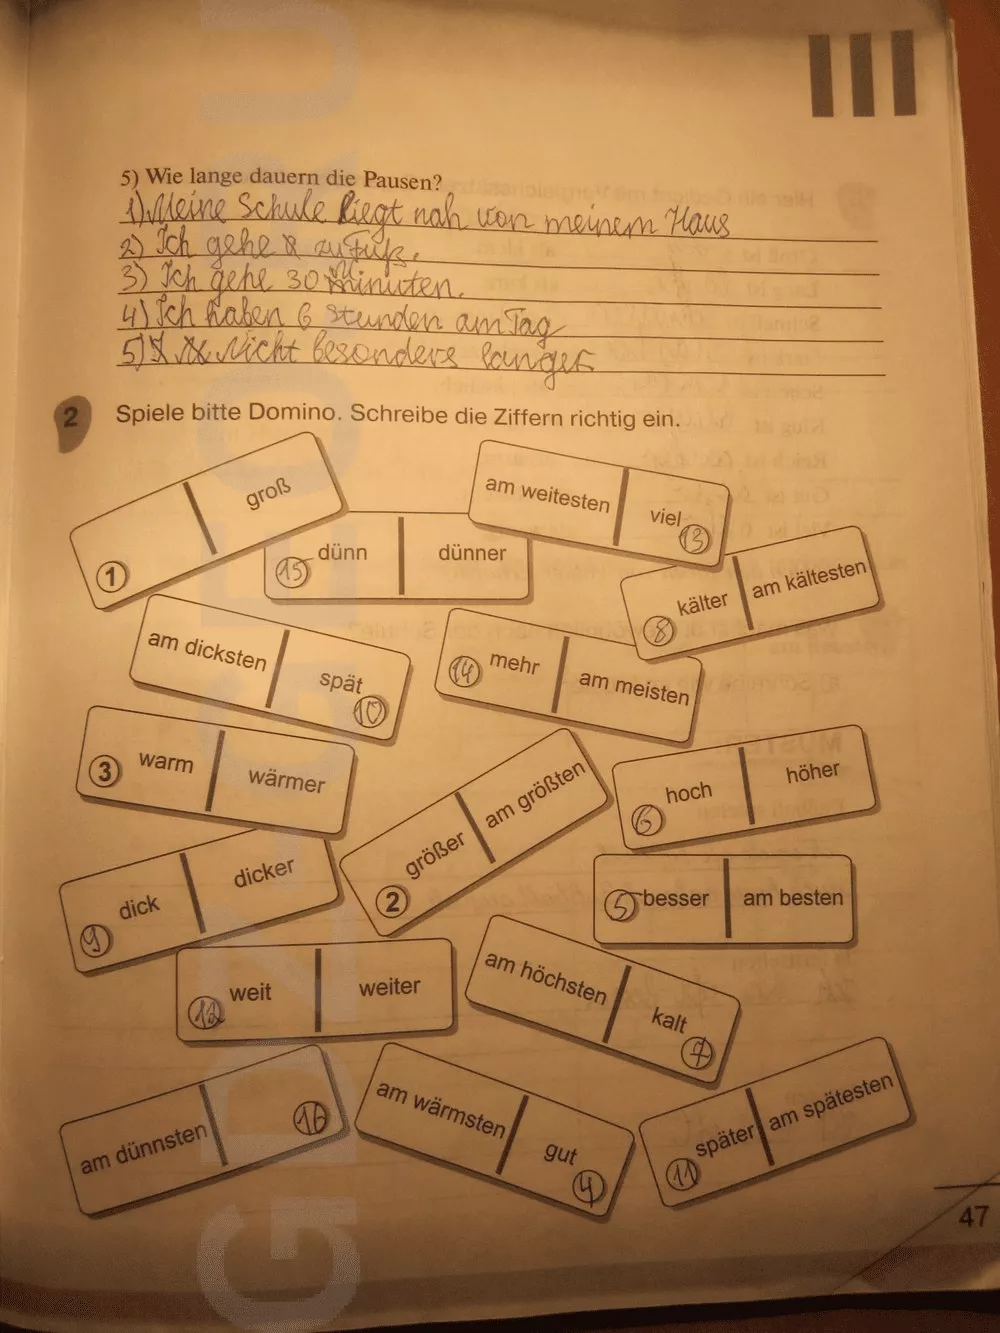 5) Wie lange dauern die Pausen?
1) Meine Schule liegt nah von meinem Haus
2) Ich gehe zu Fuß.
3) Ich gehe 30 Minuten.
4) Ich haben 6 Stunden am Tag
5) Nicht besonders langer
2 Spiele bitte Domino. Schreibe die Ziffern richtig ein.
1 groß
am weitesten viel 13
15 dünn dünner
8 kälter am kältesten
am dicksten spät 10
14 mehr am meisten
3 warm wärmer
2 größer am größten
6 hoch höher
9 dick dicker
5 besser am besten
12 weit weiter
am höchsten kalt 7
am dünnsten 16
am wärmsten gut 4
11 später am spätesten
47